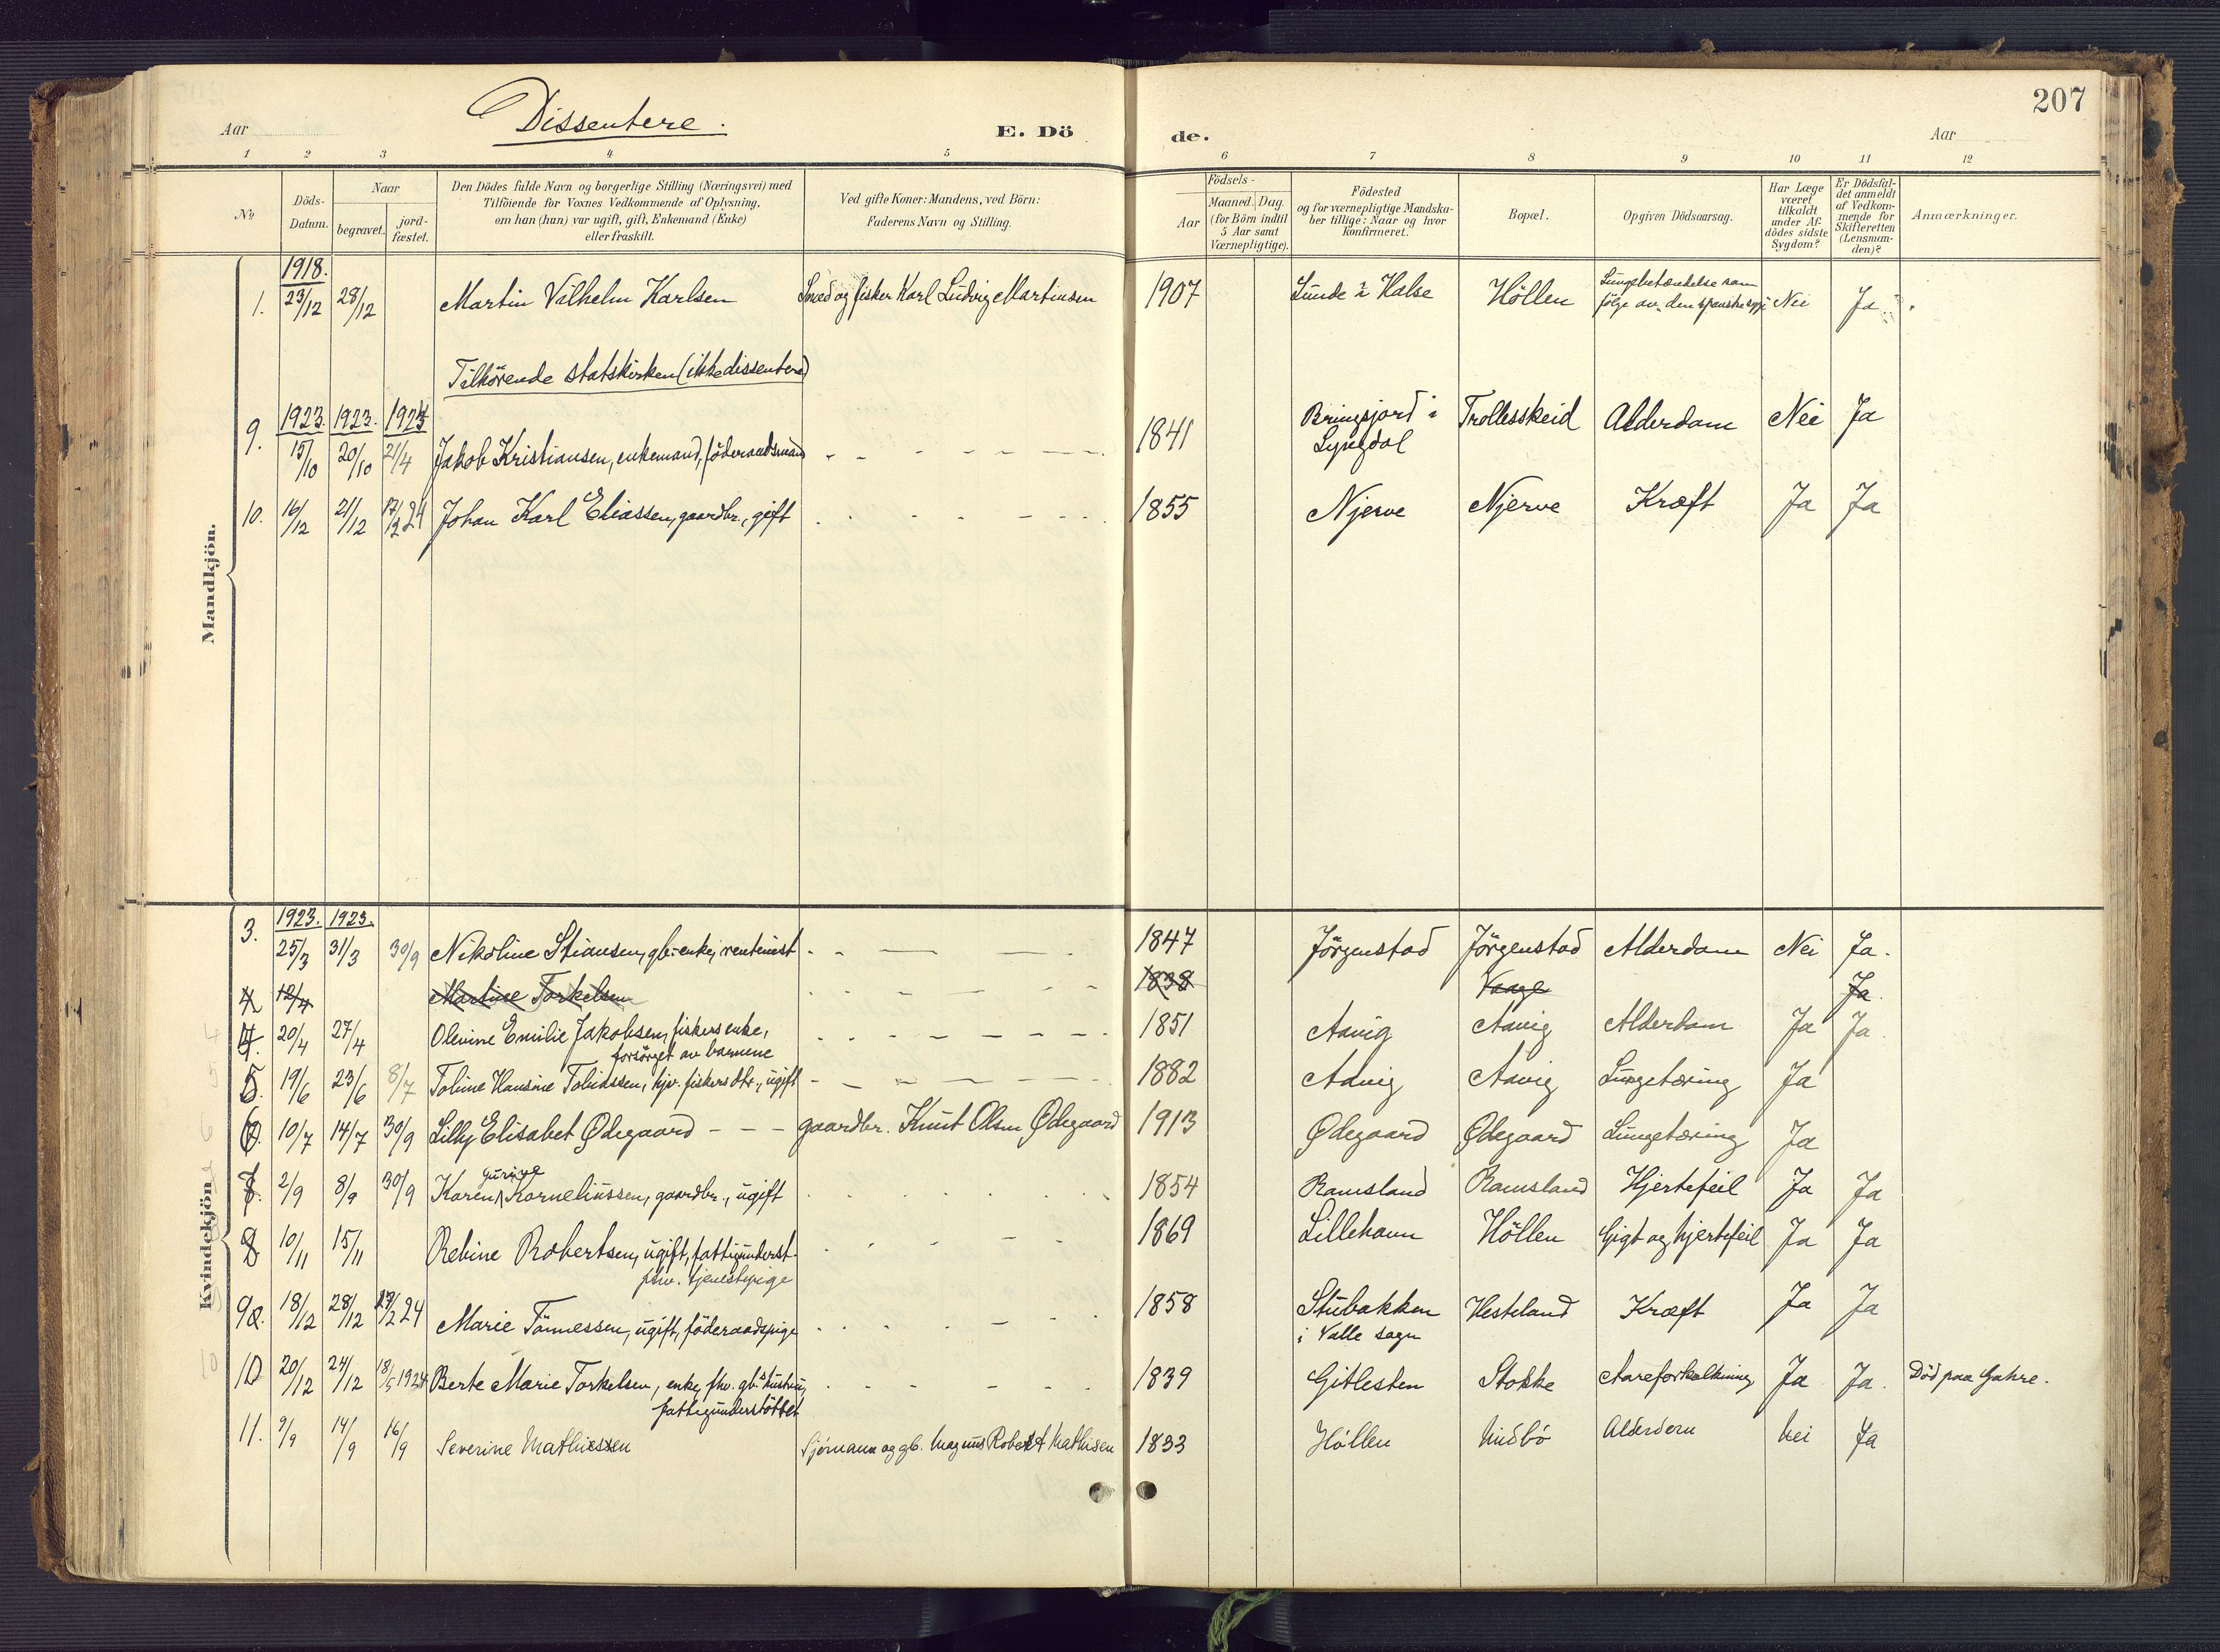 207
Aar
Dissentere.
E. Dö
de.
Aar
1 2 3 4 5 6 7 8 9 10 11 12
No
Döds-
Datum.
Naar
begravet.
jord-
fæstet.
Den Dödes fulde Navn og borgerlige Stilling (Næringsvei) med
Tilföiende for Voxnes Vedkommende af Oplysning,
om han (hun) var ugift, gift, Enkemand (Enke)
eller fraskilt.
Ved gifte Koner: Mandens, ved Börn:
Faderens Navn og Stilling.
Födsels-
Aar
Maaned. Dag.
(for Börn indtil
5 Aar samt
Værnepligtige).
Födested
og for værnepligtige Mandska-
ber tillige: Naar og hvor
konfirmeret.
Bopæl.
Opgiven Dödsaarsag.
Har Læge
været
tilkaldt
under Af-
dödes sidste
Sygdom?
Er Dödsfal-
det anmeldt
af Vedkom-
mende for
Skifteretten
(Lensman-
den)?
Anmærkninger.
Mandkjön.
1918.
1. 23/12 28/12 Martin Vilhelm Karlsen Smed og fisker Karl Ludvig Martinsen 1907 Lunde i Halse Höllen Lungebetændelse som
følge av den spanske syge Nei Ja
Tilhörende statskirken (ikke dissentere)
1923. 1923. 1924
9. 15/10 20/10 21/4 Jakob Kristiansen, enkemand, föderaadsmand 1841 Bringsjord i
Lyngdal Trollesskeid Alderdom Nei Ja
10. 16/12 21/12 17/2 24 Johan Karl Eliassen, gaardbr., gift 1855 Njerve Njerve Kræft Ja Ja
Kvindekjön
1923. 1923.
3. 25/3 31/3 30/9 Nikoline Stiansen, gb.enke, rentenist 1847 Jörgenstad Jörgenstad Alderdom Nei Ja.
4 12/4 Martine Torkelsen 1838 Vaage Ja.
4. 20/4 27/4 Olevine Emilie Jakobsen, fiskers enke,
forsörget av barnene 1851 Aavig Aavig Alderdom Ja Ja.
5. 19/6 23/6 8/7 Tobine Hansine Tobiassen, hjv. fiskers dtr., ugift 1882 Aavig Aavig Lungetæring Ja
6. 10/7 14/7 30/9 Lilly Elisabet Ødegaard - - - gaardbr. Knut Olsen Ødegaard 1913 Ødegaard Ødegaard Lungetæring Ja
7. 2/9 8/9 30/9 Karen Gurine Korneliussen, gaardbr., ugift 1854 Ramsland Ramsland Hjertefeil Ja Ja
8 10/11 15/11 Rebine Robertsen, ugift, fattigunderst.
fhv. tjenestepige 1869 Lillehavn Höllen Gigt og hjertefeil Ja Ja
9. 18/12 28/12 17/2 24 Marie Tönnessen, ugift, föderaadspige 1858 Stubakken
i Valle sogn Hesteland Kræft Ja Ja
10 20/12 24/12 18/5 1924 Berte Marie Torkelsen, enke, fhv. gb.'s hustru,
fattigunderstöttet 1839 Gitlesten Stokke Aareforkalkning Ja Ja. Död paa Gahre.
11. 9/9 14/9 16/9 Severine Mathiessen Sjömann og gb. Magnus Robert Mathisen 1833 Höllen Midbö Alderdom Nei Ja